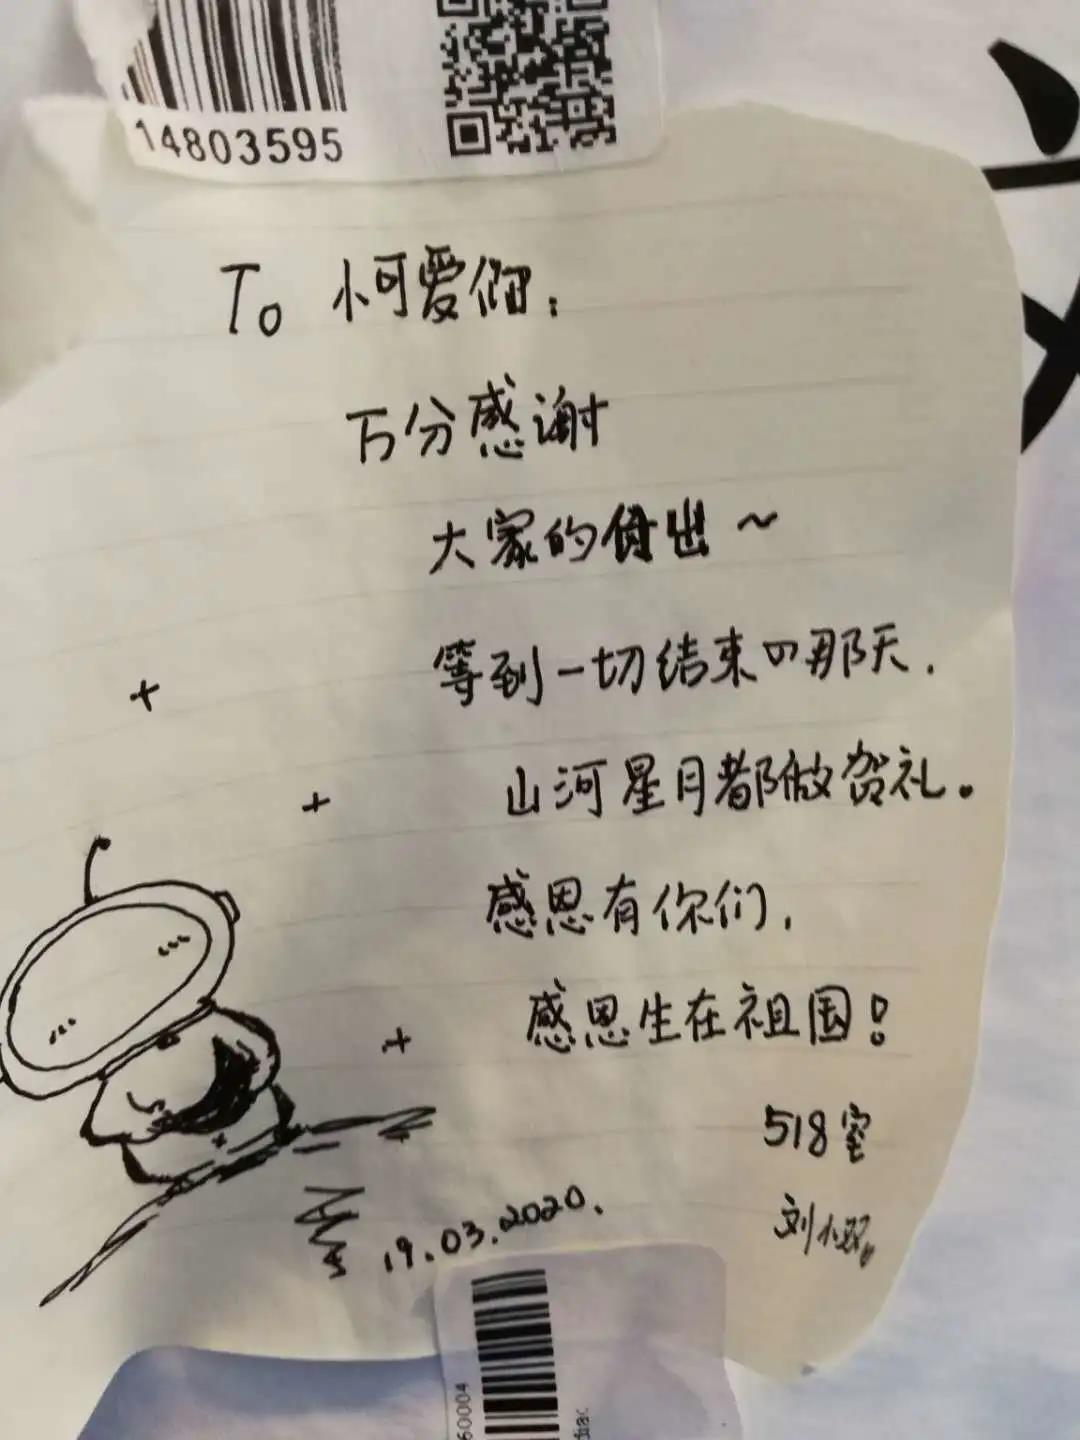 14803595
To 小可爱们：
万分感谢
大家的付出～
等到一切结束の那天，
山河星月都做贺礼。
感恩有你们，
感恩生在祖国！
518室
刘小双。
19.03.2020.
60004